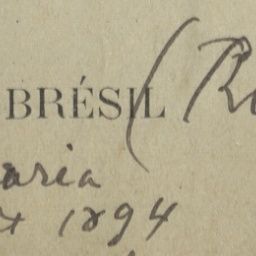 BRÉSIL (R
aria
t 1894